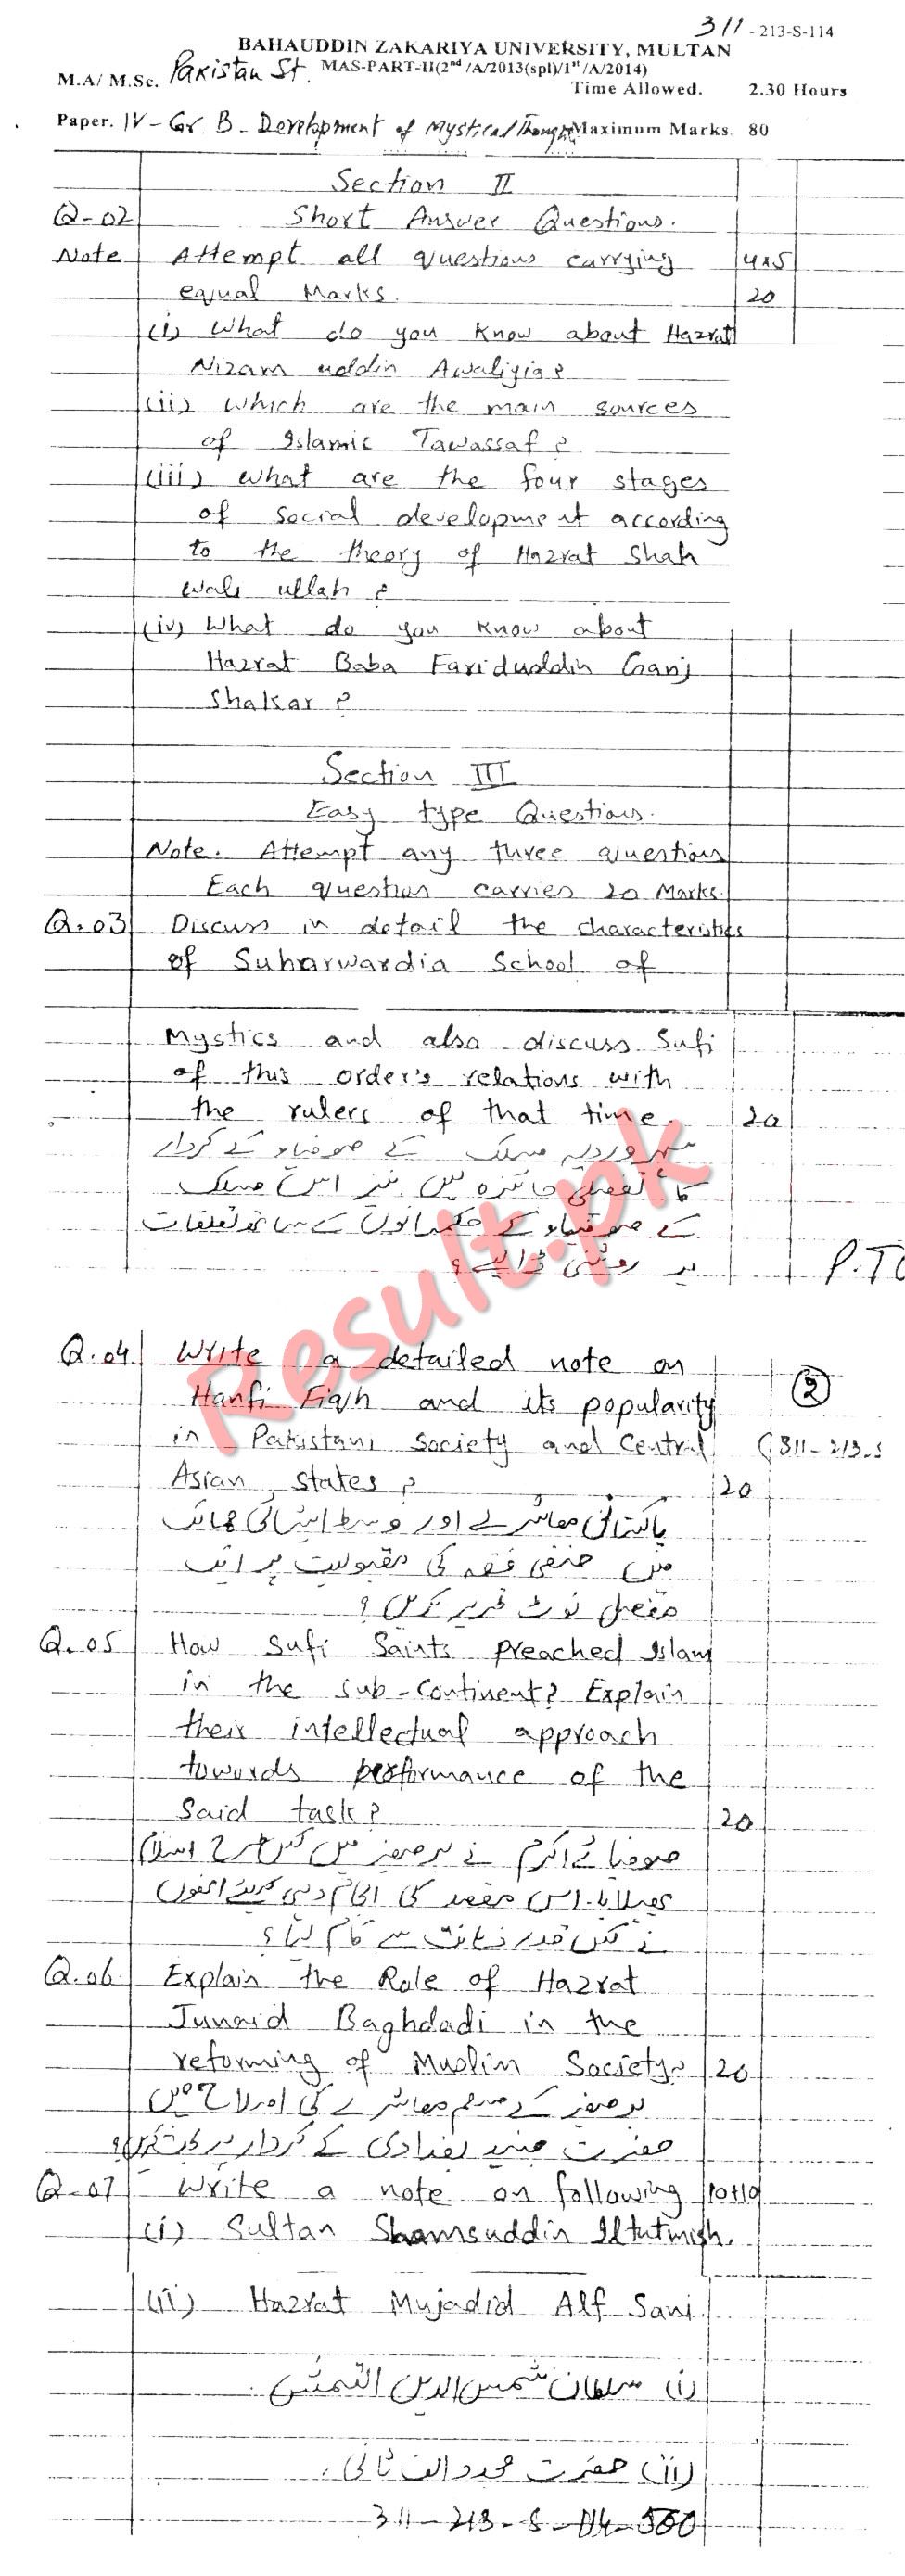 311 - 213-S-114
BAHAUDDIN ZAKARIYA UNIVERSITY, MULTAN
M.A/ M.Sc. Pakistan St. MAS-PART-II(2nd /A/2013(spl)/1st /A/2014)
Time Allowed. 2.30 Hours
Paper. IV - Gr. B - Development of Mystical Thought Maximum Marks. 80
Section II
Q-02 Short Answer Questions.
Note Attempt all questions carrying 4x5
equal Marks. 20
(i) What do you know about Hazrat
Nizam uddin Awaliyia?
(ii) Which are the main sources
of Islamic Tawassaf?
(iii) What are the four stages
of social development according
to the theory of Hazrat Shah
Wali ullah?
(iv) What do you know about
Hazrat Baba Fariduddin Ganj
Shakar?
Section III
Easy type Questions.
Note. Attempt any three question
Each question carries 20 Marks.
Q.03 Discuss in detail the characteristics
of Suharwardia School of
Mystics and also discuss Sufi
of this order's relations with
the rulers of that time. 20
سہروردیہ مسلک کے صوفیاء کے کردار
کا تفصیلی جائزہ لیں نیز اس مسلک
کے صوفیاء کے حکمرانوں کے ساتھ تعلقات
پر روشنی ڈالیے؟
P.TO
Q.04 Write a detailed note on
Hanfi Fiqh and its popularity
2
in Pakistani Society and Central
(311-213-S
Asian States? 20
پاکستانی معاشرے اور وسط ایشیائی ممالک
میں حنفی فقہ کی مقبولیت پر ایک
مفصل نوٹ تحریر کریں؟
Q.05 How Sufi Saints preached Islam
in the sub-continent? Explain
their intellectual approach
towards performance of the
Said task? 20
صوفیائے اکرم نے برصغیر میں کس طرح اسلام
پھیلایا۔ اس مقصد کی انجام دہی کیلئے انہوں
نے کس قدر ذہانت سے کام لیا؟
Q.06 Explain the Role of Hazrat
Junaid Baghdadi in the
reforming of Muslim Society? 20
برصغیر کے مسلم معاشرے کی اصلاح میں
حضرت جنید بغدادی کے کردار پر بحث کریں؟
Q.07 Write a note on following 10+10
(i) Sultan Shamsuddin Iltutmish.
(ii) Hazrat Mujadid Alf Sani
(i) سلطان شمس الدین التمش۔
(ii) حضرت مجدد الف ثانی۔
311-213-S-114-500
Result.pk